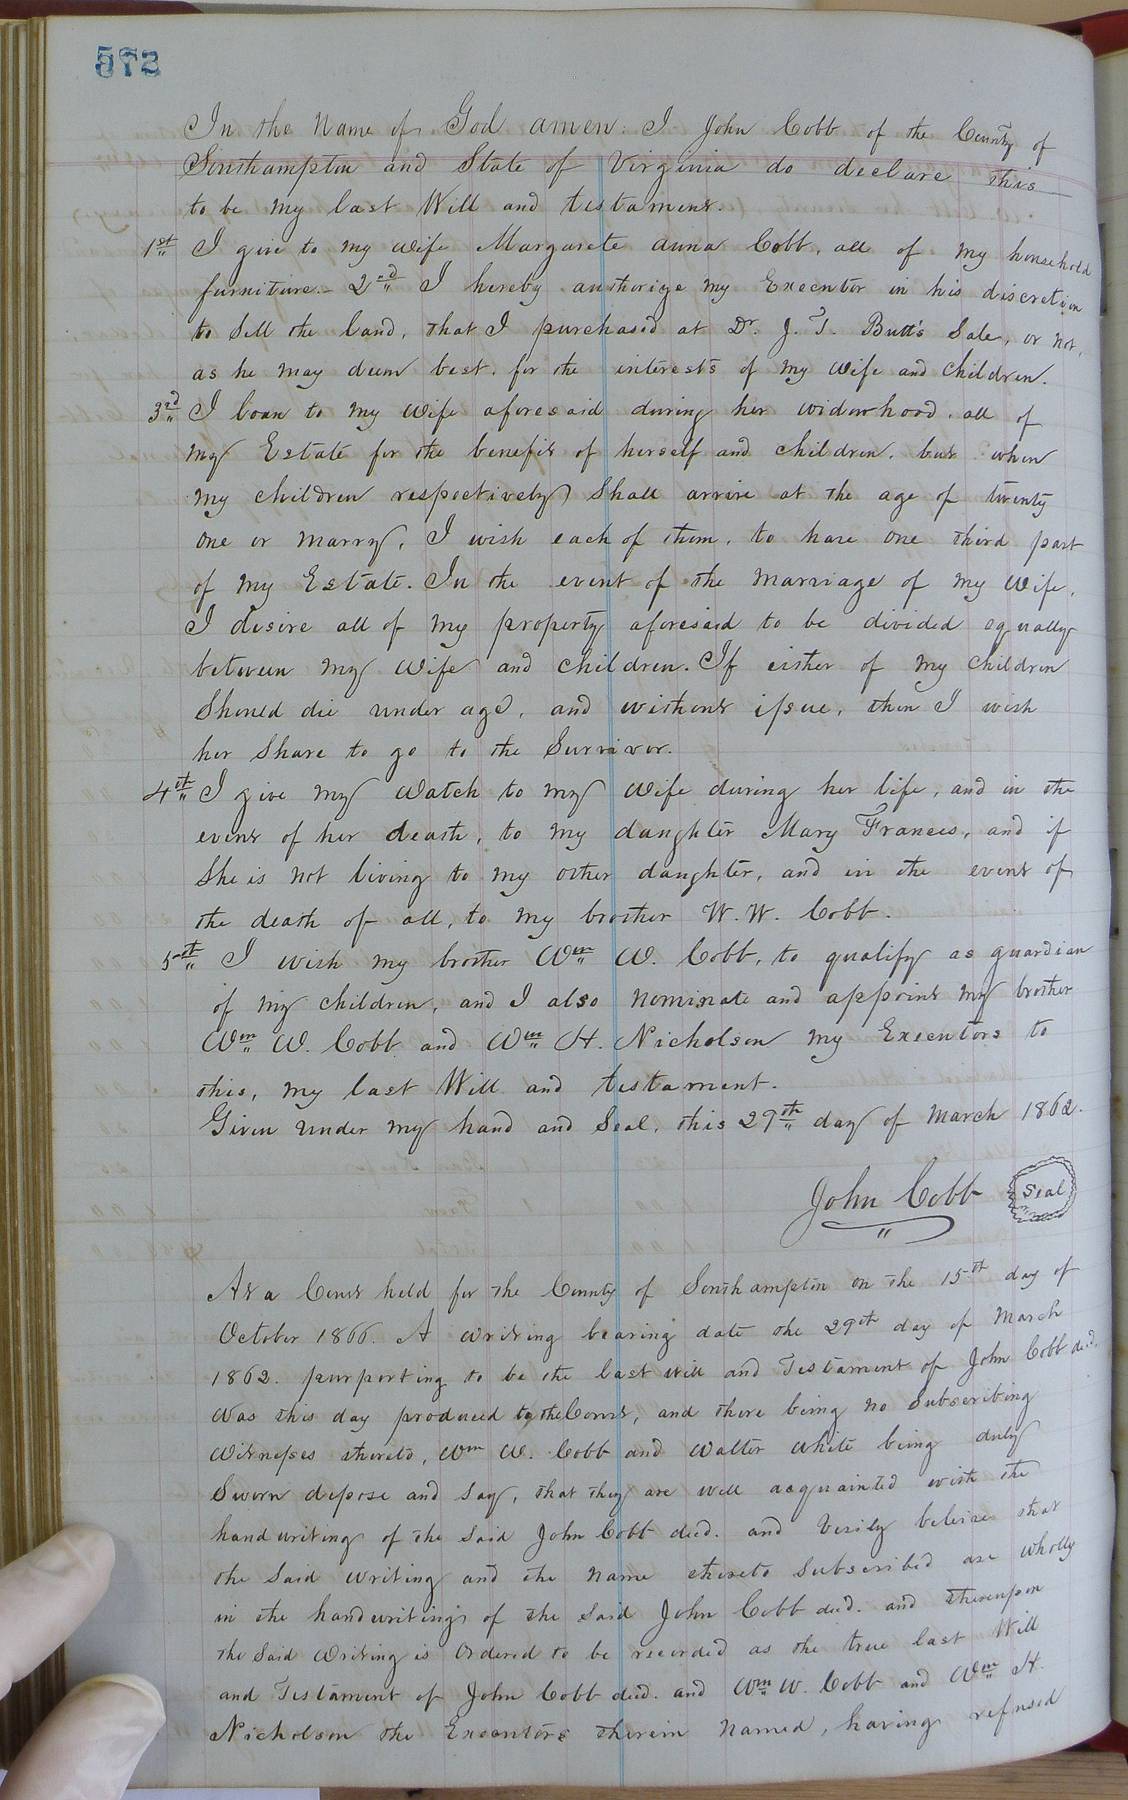 572
In the Name of God amen. I John Cobb of the County of
Southampton and State of Virginia do declare this
to be my last Will and testament.
1st I give to my wife Margarete Anna Cobb, all of my household
furniture. 2nd I hereby authorize my Executor in his discretion
to sell the land, that I purchased at Dr. J. T. Butt's Sale, or not,
as he may deem best, for the interests of my wife and children.
3rd I loan to my wife aforesaid during her widowhood, all of
my Estate for the benefit of herself and children, but when
my children respectively shall arrive at the age of twenty
one or marry, I wish each of them, to have one third part
of my Estate. In the event of the marriage of my wife,
I desire all of my property aforesaid to be divided equally
between my wife and children. If either of my children
Should die under age, and without issue, then I wish
her Share to go to the Survivor.
4th I give my watch to my wife during her life, and in the
event of her death, to my daughter Mary Frances, and if
She is not living to my other daughter, and in the event of
the death of all, to my brother W. W. Cobb.
5th I wish my brother Wm W. Cobb, to qualify as guardian
of my children, and I also nominate and appoint my brother
Wm W. Cobb and Wm H. Nicholson my Executors to
this, my last Will and testament.
Given under my hand and Seal, this 29th day of March 1862.
John Cobb Seal
At a Court held for the County of Southampton on the 15th day of
October 1866. A writing bearing date the 29th day of March
1862. purporting to be the last will and Testament of John Cobb decd.
was this day produced to the Court, and there being no Subscribing
Witnesses thereto, Wm W. Cobb and Walter White being duly
Sworn depose and say, that they are well acquainted with the
handwriting of the said John Cobb decd. and verily believe that
the said writing and the name thereto subscribed are wholly
in the handwritings of the said John Cobb decd. and thereupon
the said writing is Ordered to be recorded as the true last Will
and Testament of John Cobb decd. and Wm W. Cobb and Wm H.
Nicholson the Executors therein named, having refused